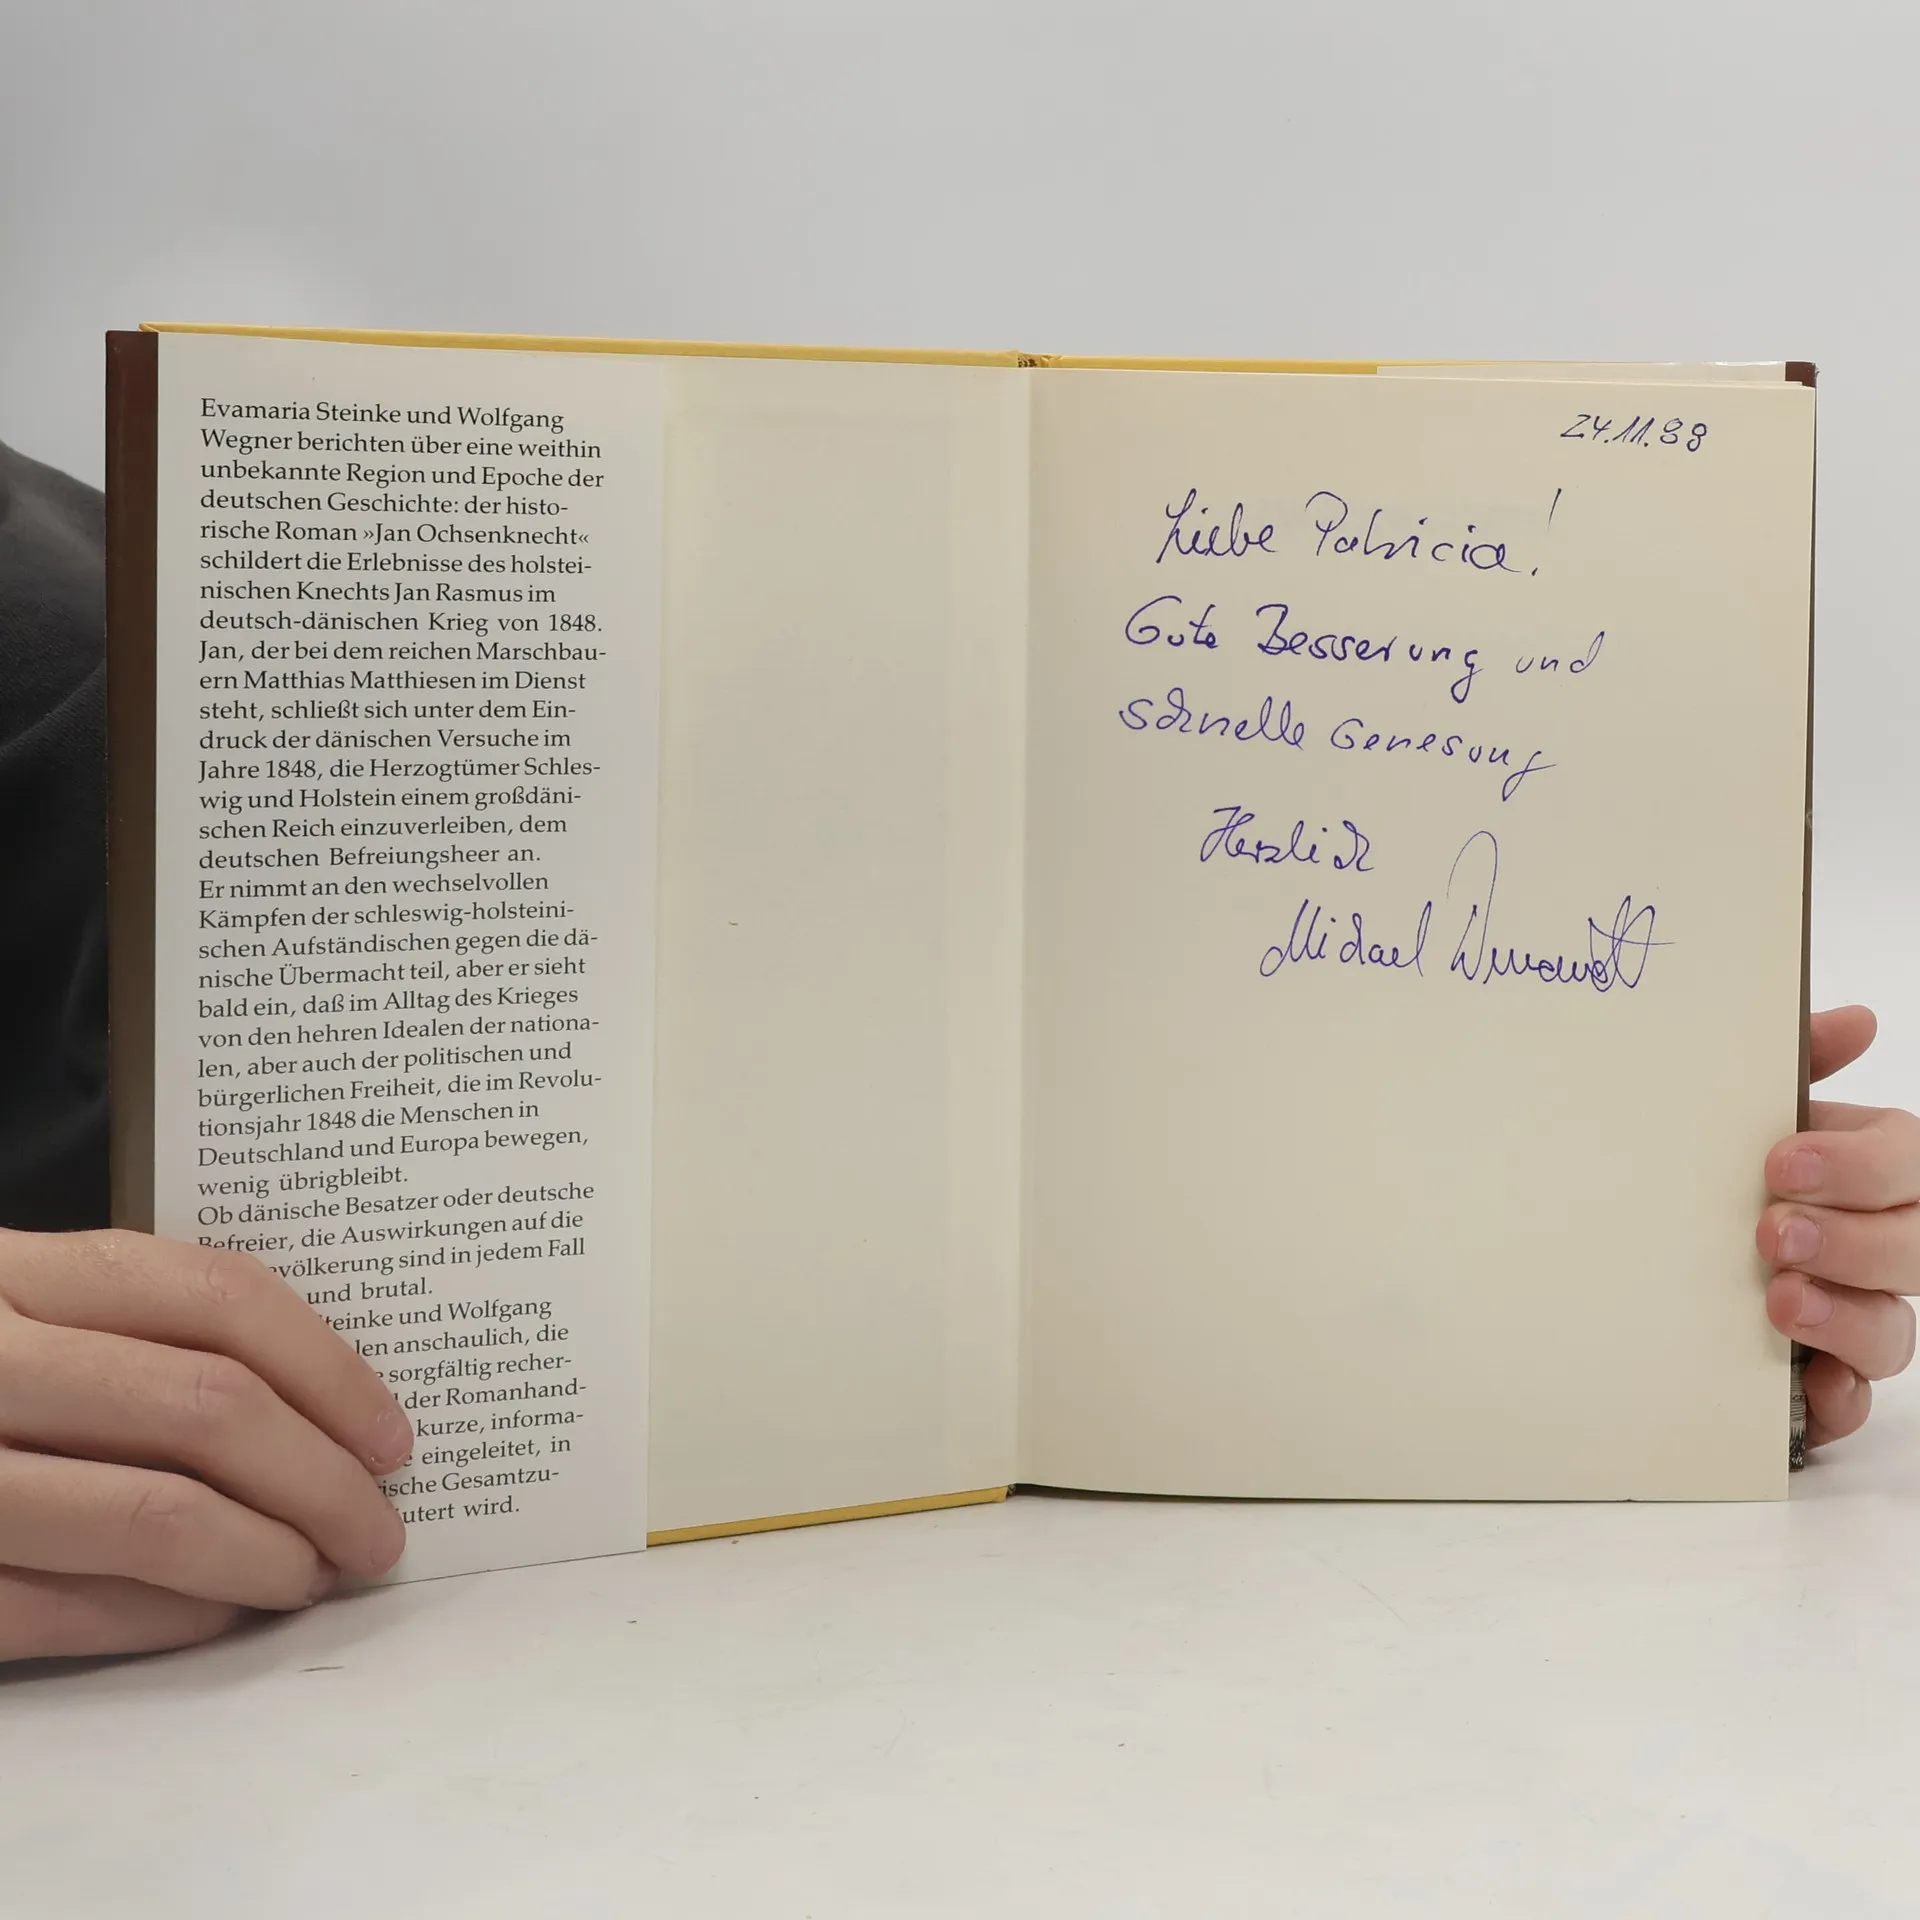 Evamaria Steinke und Wolfgang
Wegner berichten über eine weithin
unbekannte Region und Epoche der
deutschen Geschichte: der histo-
rische Roman »Jan Ochsenknecht«
schildert die Erlebnisse des holstei-
nischen Knechts Jan Rasmus im
deutsch-dänischen Krieg von 1848.
Jan, der bei dem reichen Marschbau-
ern Matthias Matthiesen im Dienst
steht, schließt sich unter dem Ein-
druck der dänischen Versuche im
Jahre 1848, die Herzogtümer Schles-
wig und Holstein einem großdäni-
schen Reich einzuverleiben, dem
deutschen Befreiungsheer an.
Er nimmt an den wechselvollen
Kämpfen der schleswig-holsteini-
schen Aufständischen gegen die dä-
nische Übermacht teil, aber er sieht
bald ein, daß im Alltag des Krieges
von den hehren Idealen der nationa-
len, aber auch der politischen und
bürgerlichen Freiheit, die im Revolu-
tionsjahr 1848 die Menschen in
Deutschland und Europa bewegen,
wenig übrigbleibt.
Ob dänische Besatzer oder deutsche
Befreier, die Auswirkungen auf die
völkerung sind in jedem Fall
und brutal.
teinke und Wolfgang
len anschaulich, die
sorgfältig recher-
der Romanhand-
kurze, informa-
eingeleitet, in
ische Gesamtzu-
utert wird.
24.11.88
Liebe Patricia!
Gute Besserung und
schnelle Genesung
Herzlich
Michael